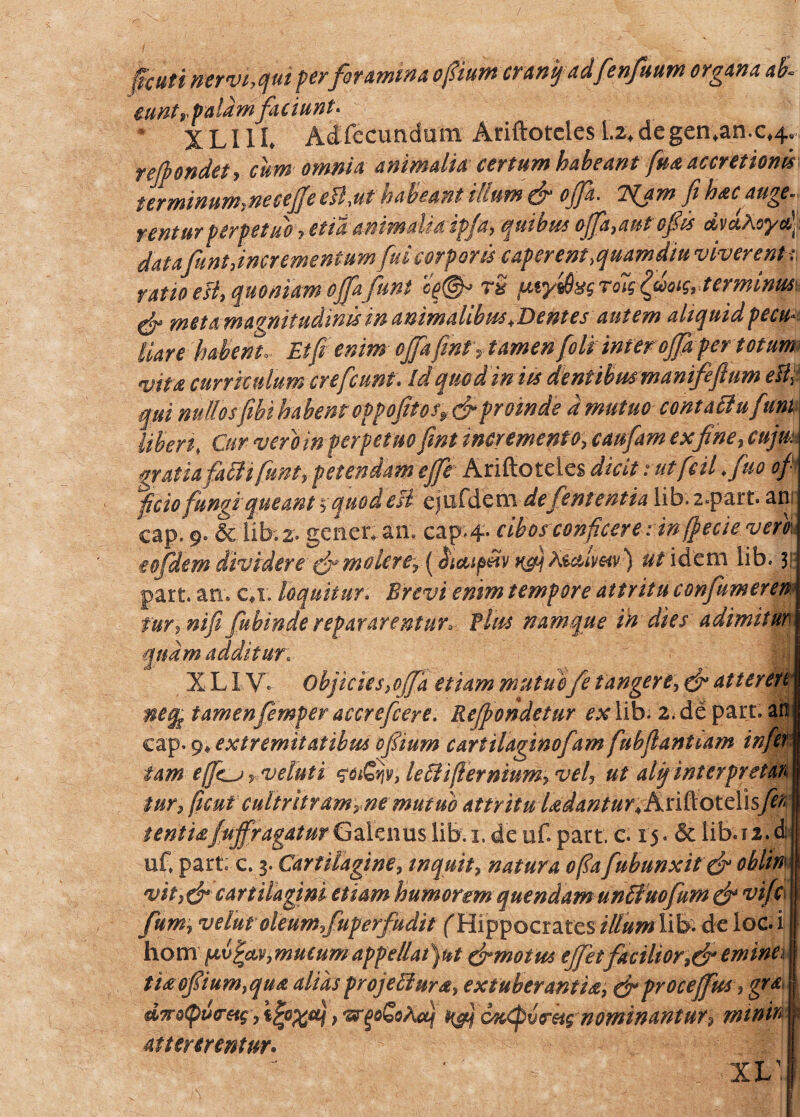 ſicuti nervi, qui per foramina oſsium cranij ad ſenſuum organa ab-
eunt, palàm faciunt.
XLIII. Ad ſecundum Ariſtoteles l.2. de gen.an.c.4.
reſpondet, cùm omnia animalia certum habeant ſuæ accretionis
terminum, neceſſe eſt, ut habeant illum & oſſa. Nam ſi hæc auge-
rentur perpetuò, etiã animalia ipſa, quibus oſſa, aut oſsis ἀνάλογα
data ſunt, incrementum ſui corporis caperent, quamdiu viverent:
ratio eſt, quoniam oſſa ſunt ὅρ@ τȣ̃ μεγέθȣς τοῖς ζώοις, terminus
& meta magnitudinis in animalibus. Dentes autem aliquid pecu-
liare habent. Etſi enim oſſa ſint, tamen ſoli inter oſſa per totum
vitæ curriculum creſcunt. Id quod in iis dentibus manifeſtum eſt,
qui nullos ſibi habent oppoſitos, & proinde à mutuo contactu ſunt
liberi. Cur verò in perpetuo ſint incremento, cauſam ex fine, cujus
gratia facti ſunt, petendam eſſe Ariſtoteles dicit: ut ſcil. ſuo of-
ficio fungi queant, quod eſt ejuſdem de ſententia lib. 2. part. an.
cap. 9. & lib. 2. gener. an. cap. 4. cibos conficere: in ſpecie verò
eoſdem dividere & molere, (διαιρεῖν καὶ λεαίνειν) ut idem lib. 3.
part. an. c.1. loquitur. Brevi enim tempore attritu conſumeren-
tur, niſi ſubinde repararentur. Plus namque in dies adimitur
quàm additur.
XLIV. Objicies, oſſa etiam mutuò ſe tangere, & atterere
neq; tamen ſemper accreſcere. Reſpondetur ex lib. 2. de part. an
cap. 9. extremitatibus oſsium cartilaginoſam ſubſtantiam inſer
tam eſſe, veluti ςοιβὴν, lectiſternium, vel, ut alij interpretan
tur, ſicut culcitram, ne mutuò attritu lædantur. Ariſtotelis ſen
tentiæ ſuffragatur Galenus lib. 1. de uſ. part. c. 15. & lib. 12. d
uſ. part. c. 3. Cartilagine, inquit, natura oſſa ſubunxit & oblini
vit, & cartilagini etiam humorem quendam unctuoſum & viſc
ſum, velut oleum, ſuperfudit (Hippocrates illum lib. de loc. i
hom μύξαν, mucum appellat) ut & motus eſſet facilior, & eminen
tiæ oſsium, quæ aliàs projecturæ, extuberantiæ, & proceſſus, græ
ἀποφύσεις, ἐξοχαὶ, προβολαὶ καὶ ἐκφύσεις nominantur, minim
attererentur.